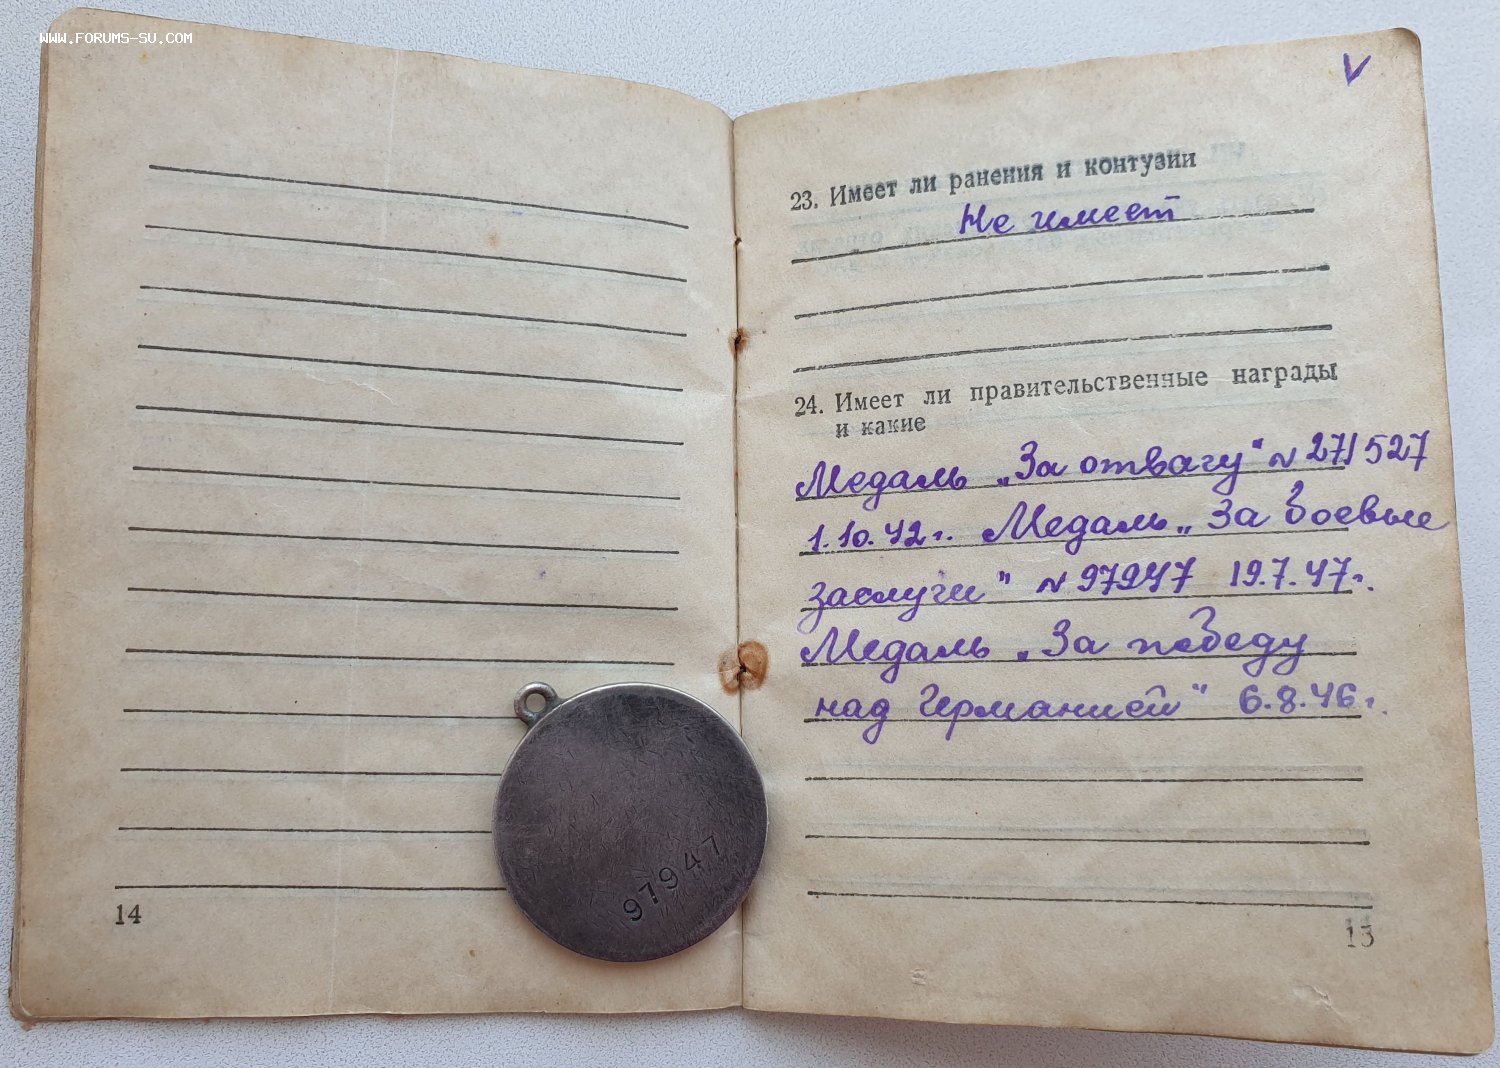 WWW.FORUMS-SU.COM
V
23. Имеет ли ранения и контузии
Не имеет
24. Имеет ли правительственные награды
и какие
Медаль „За отвагу" N 271527
1.10.42г. Медаль „За боевые
заслуги" N 97947 19.7.47г.
Медаль „За победу
над Германией" 6.8.46г.
97947
14
15